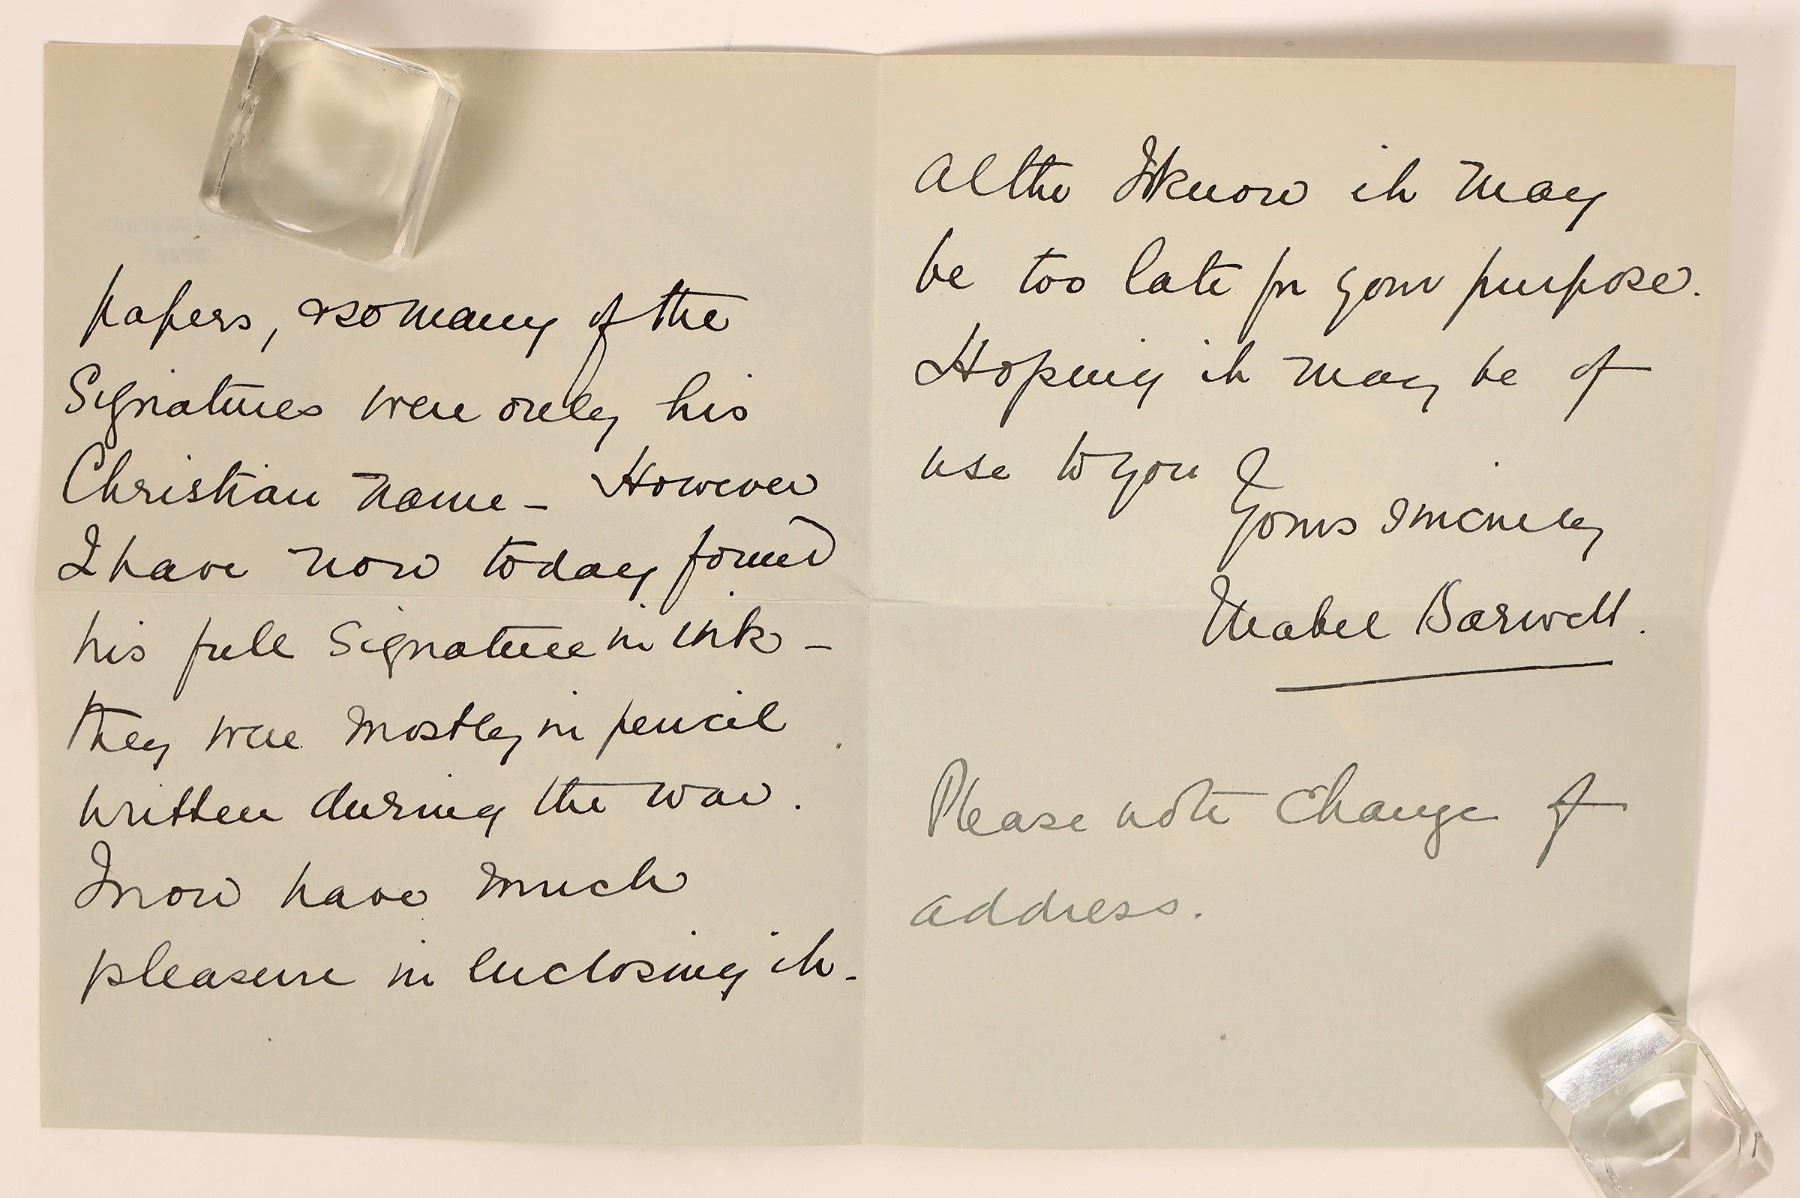 papers, & so many of the
Signatures were only his
Christian name — However
I have now today found
his full Signature in ink —
they were mostly in pencil
written during the war.
I now have much
pleasure in enclosing it —
altho I know it may
be too late for your purpose.
Hoping it may be of
use to you
Yours sincerely
Mabel Barwell.
Please note change of
address.